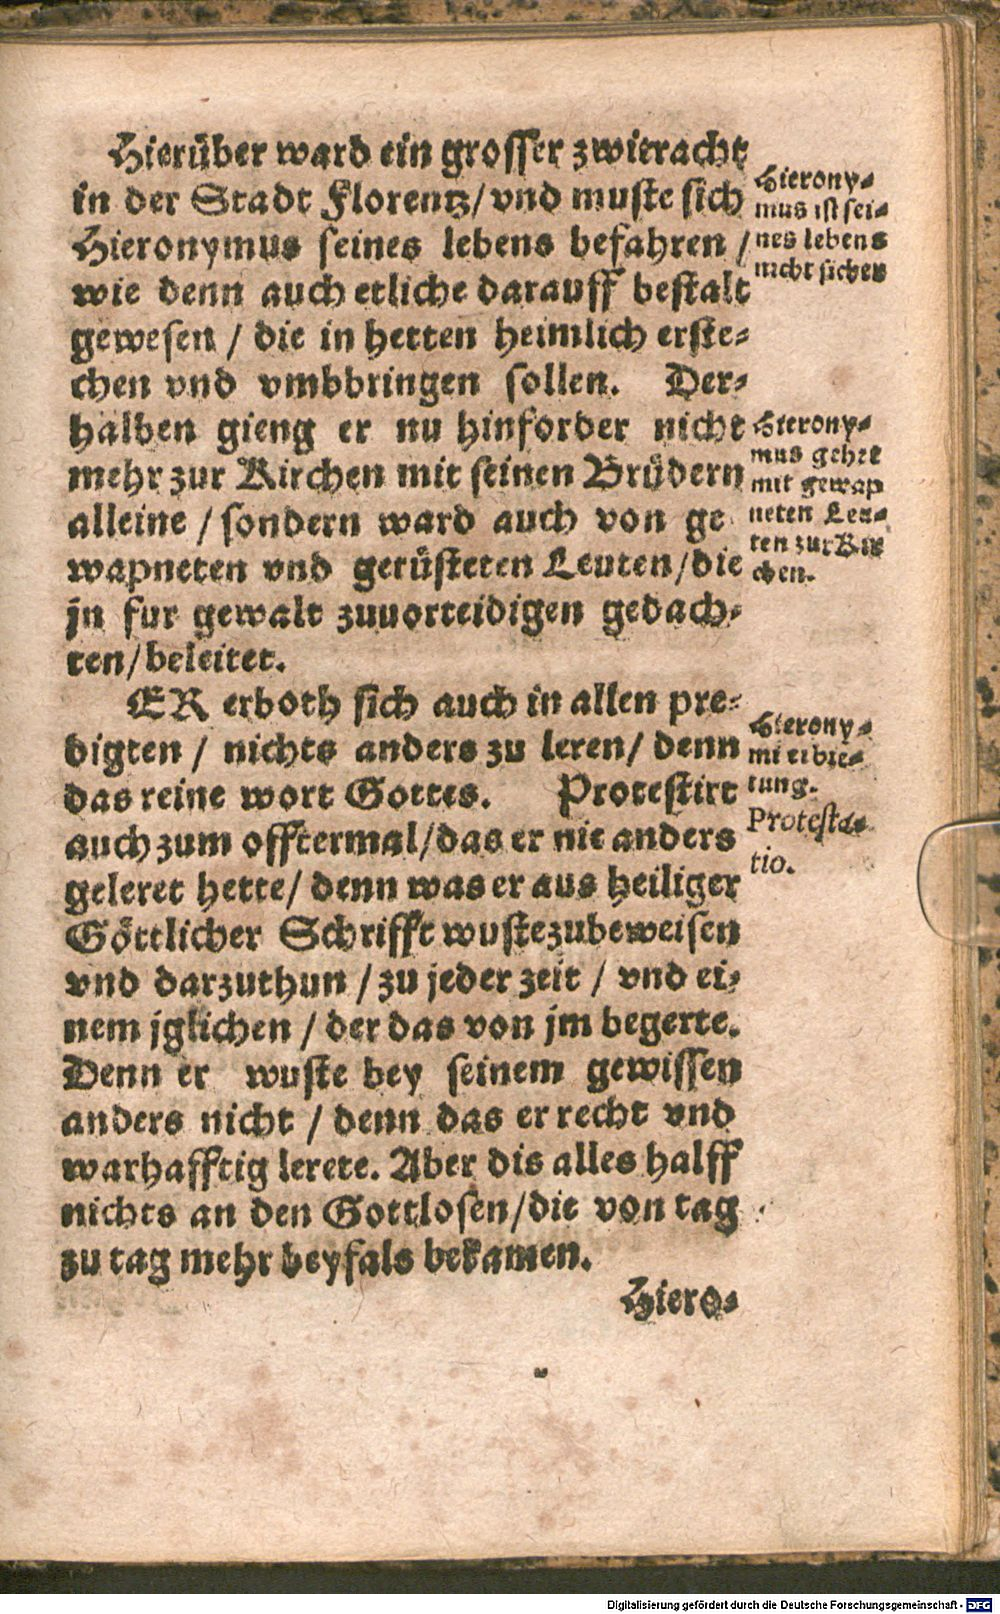 Hierüber ward ein grosser zwieracht
in der Stadt Florentz/ vnd muste sich
Hieronymus seines lebens befahren /
wie denn auch etliche darauff bestalt
gewesen / die in hetten heimlich erste-
chen vnd vmbbringen sollen. Der-
halben gieng er nu hinforder nicht
mehr zur Kirchen mit seinen Brüdern
alleine / sondern ward auch von ge
wapneten vnd gerüsteten Leuten/die
jn fur gewalt zuuorteidigen gedach-
ten/beleitet.
ER erboth sich auch in allen pre-
digten / nichts anders zu leren/ denn
das reine wort Gottes. Protestirt
auch zum offtermal/das er nie anders
geleret hette/ denn was er aus heiliger
Göttlicher Schrifft wuste zubeweisen
vnd darzuthun / zu jeder zeit / vnd ei-
nem jglichen / der das von jm begerte.
Denn er wuste bey seinem gewissen
anders nicht / denn das er recht vnd
warhafftig lerete. Aber dis alles halff
nichts an den Gottlosen/die von tag
zu tag mehr beyfals bekamen.
Hiero-
Hierony-
mus ist sei-
nes lebens
nicht sicher
Hierony-
mus gehet
mit gewap
neten Leu-
ten zur Kir
chen.
Hierony-
mi erbie-
tung.
Protesta-
tio.
Digitalisierung gefördert durch die Deutsche Forschungsgemeinschaft - DFG